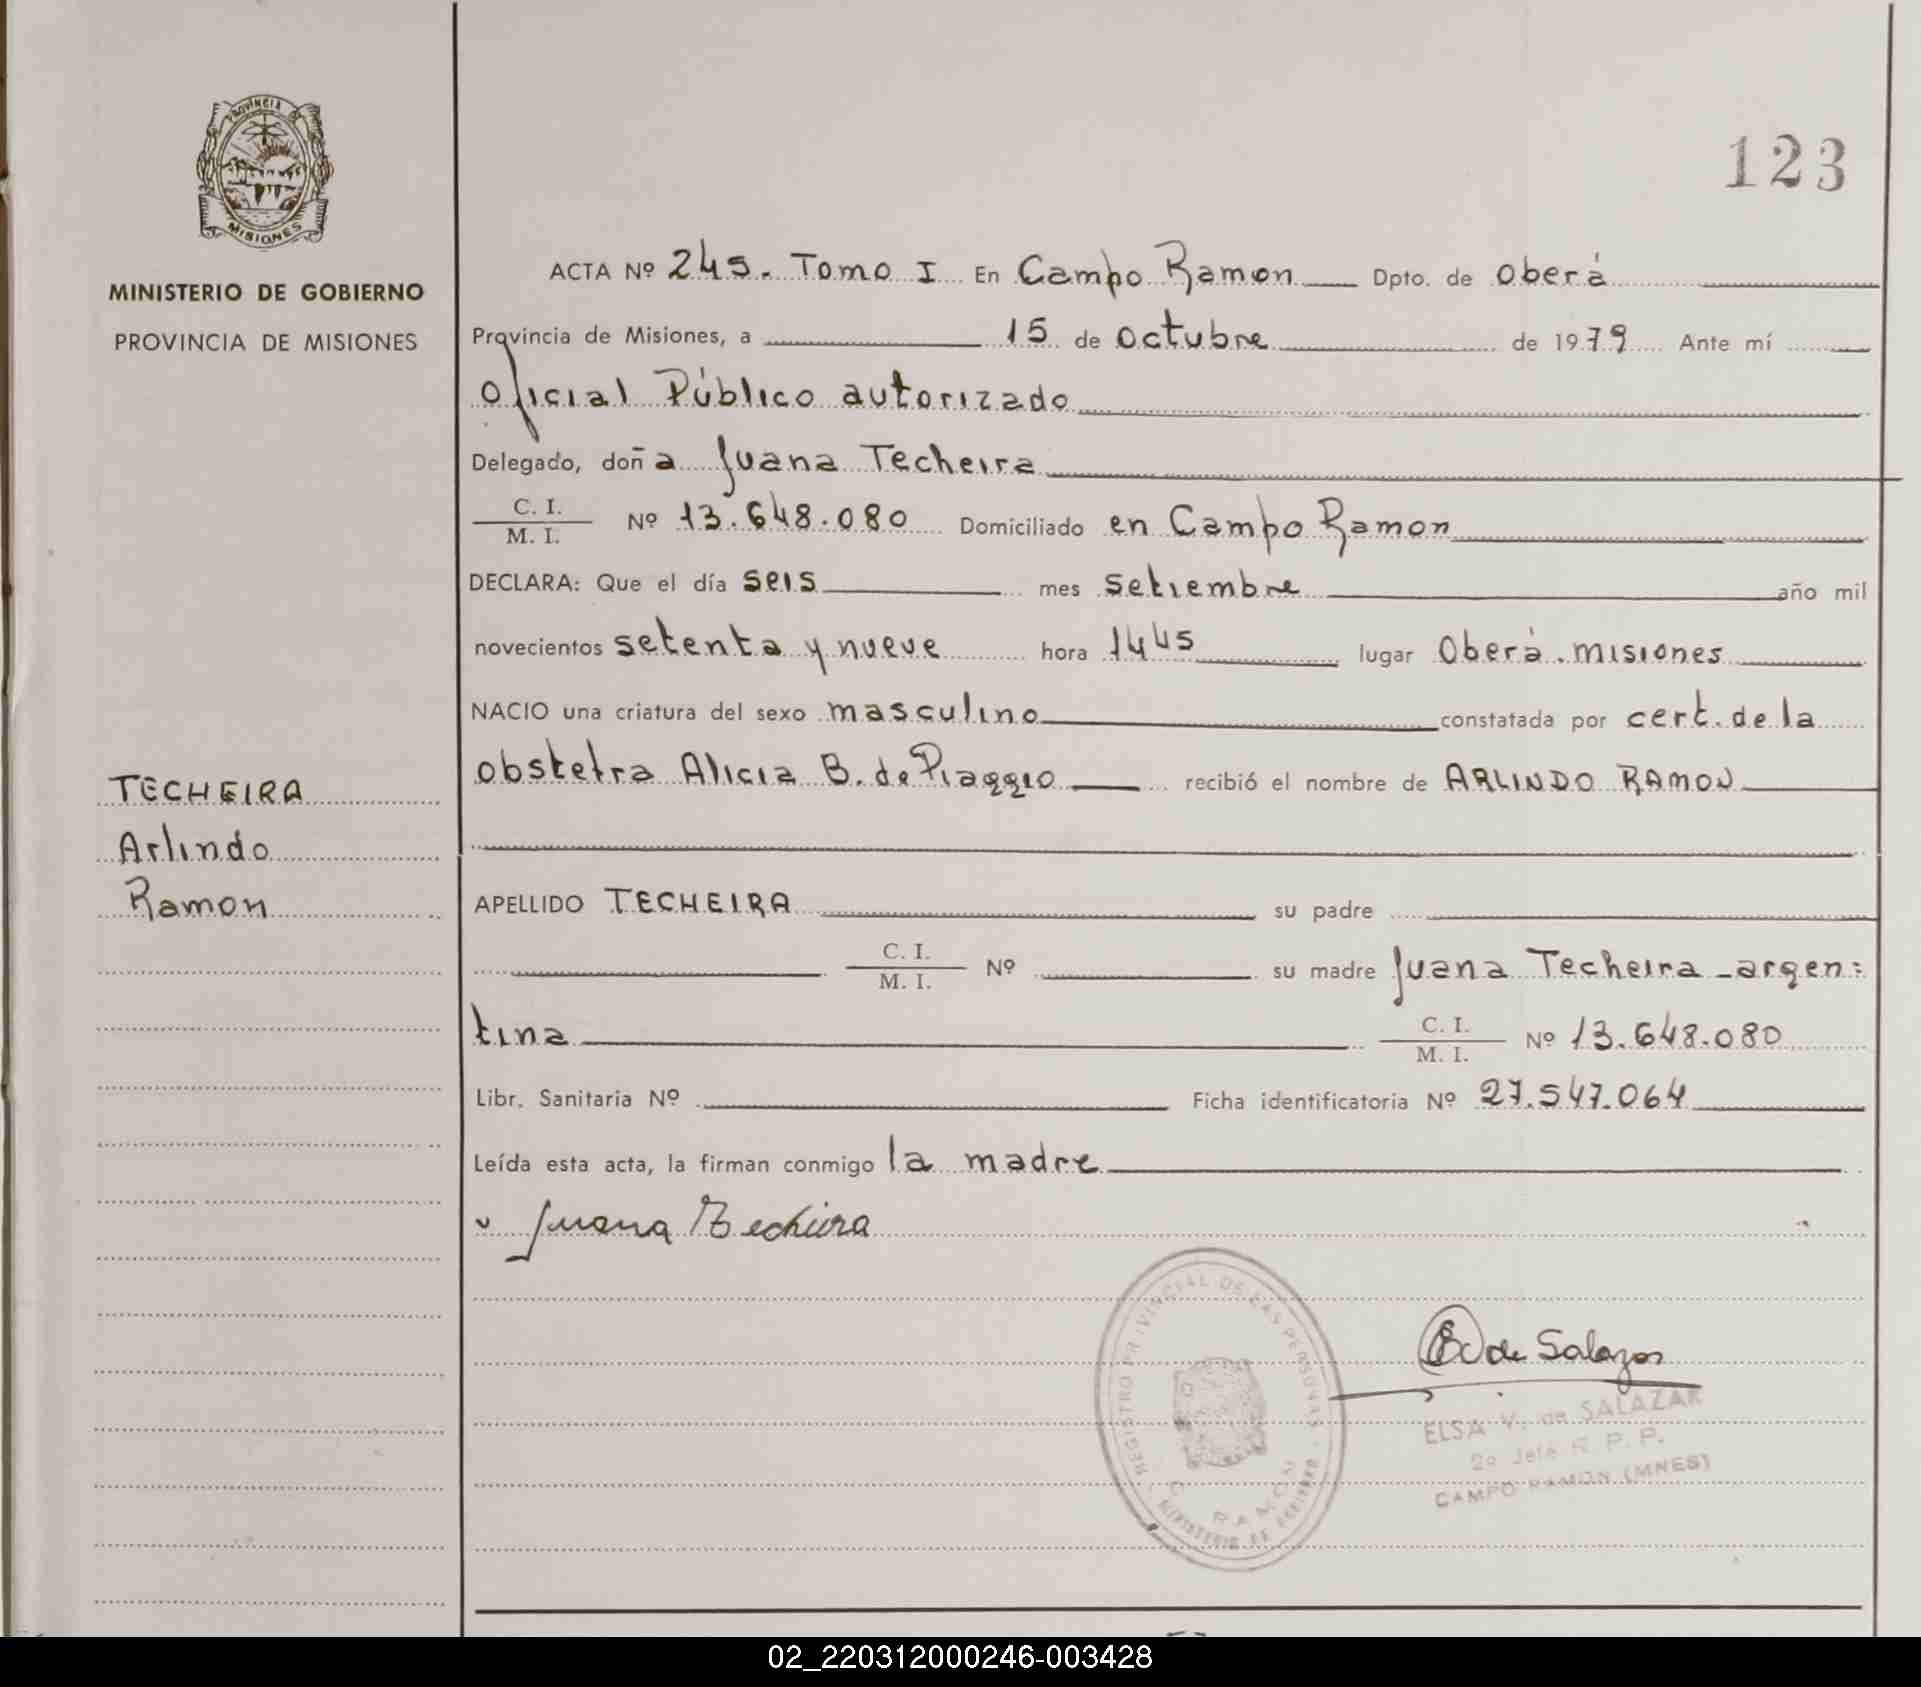 PROVINCIA DE
MISIONES
MINISTERIO DE GOBIERNO
PROVINCIA DE MISIONES
TECHEIRA
Arlindo
Ramon
123
ACTA Nº 245. Tomo I En Campo Ramon Dpto. de Oberá
Provincia de Misiones, a 15 de octubre de 1979 Ante mí
Oficial Público autorizado
Delegado, doña Juana Techeira
C. I.
M. I. Nº 13.648.080 Domiciliado en Campo Ramon
DECLARA: Que el día seis mes setiembre año mil
novecientos setenta y nueve hora 1445 lugar Oberá. misiones
NACIO una criatura del sexo masculino constatada por cert. de la
obstetra Alicia B. de Piaggio recibió el nombre de ARLINDO RAMON
APELLIDO TECHEIRA su padre
C. I.
M. I. Nº su madre Juana Techeira - argen=
tina C. I.
M. I. Nº 13.648.080
Libr. Sanitaria Nº Ficha identificatoria Nº 27.547.064
Leída esta acta, la firman conmigo la madre
Juana Techeira
de Salazar
REGISTRO PROVINCIAL DE LAS PERSONAS
C. RAMON
MINISTERIO DE GOBIERNO
ELSA V. de SALAZAR
2º Jefe R. P. P.
CAMPO RAMON (MNES)
02_220312000246-003428